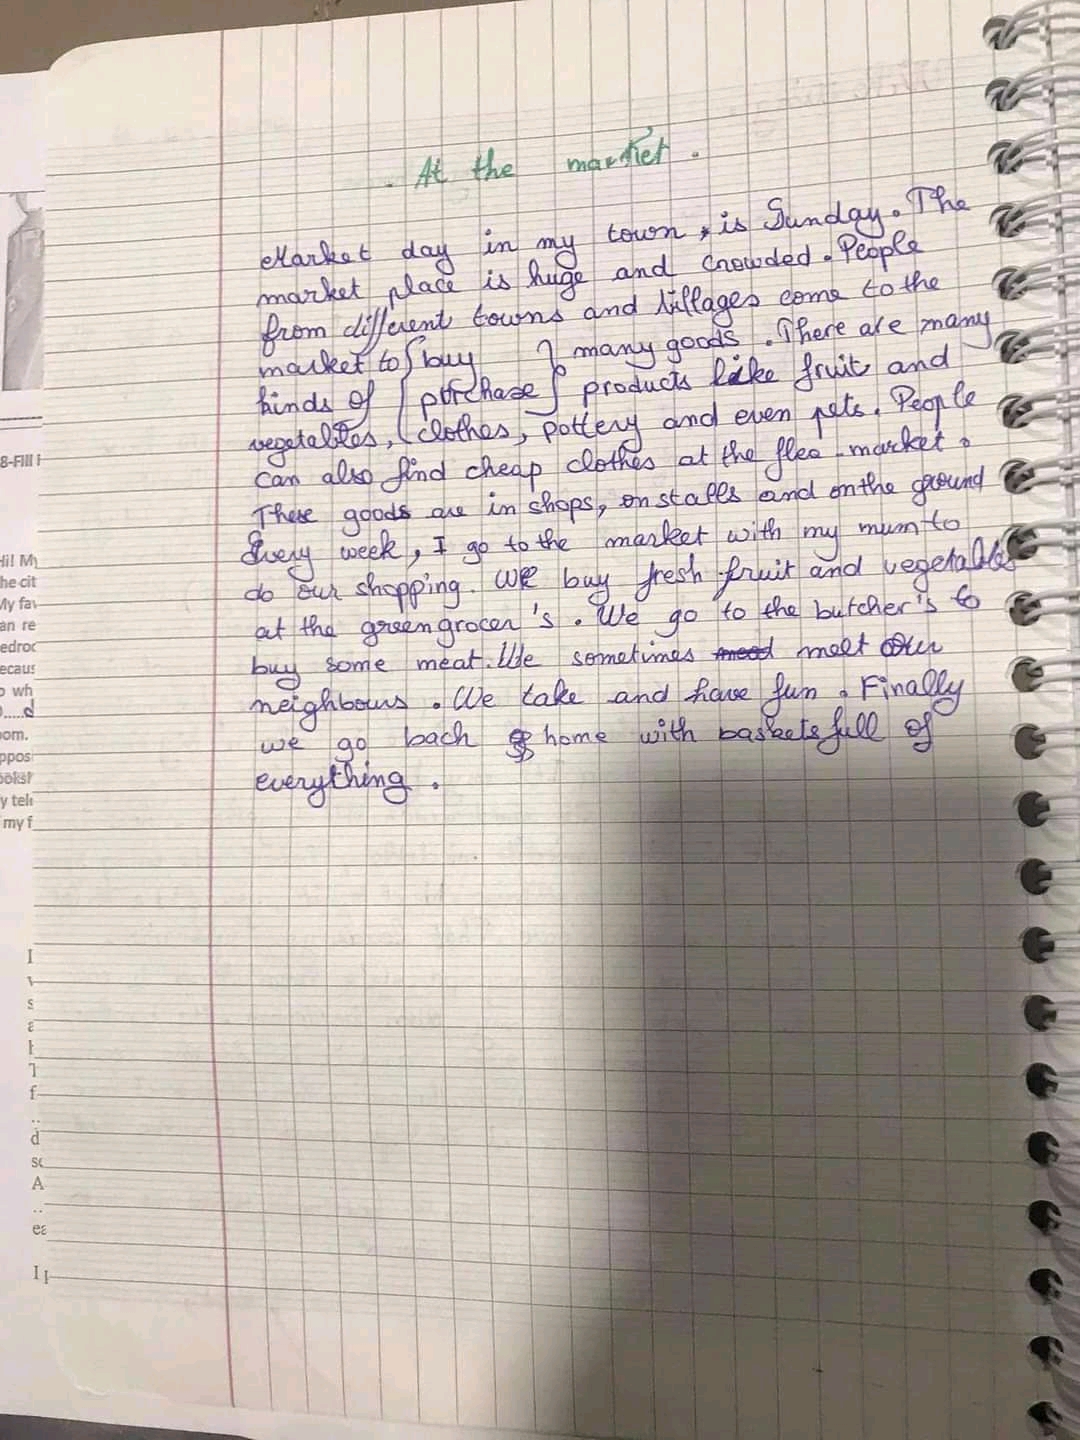 At the market.
Market day in my town, is Sunday. The
market place is huge and crowded. People
from different towns and villages come to the
market to { buy } many goods. There are many
kinds of { purchase } products like fruit and
vegetables, clothes, pottery and even pets. People
can also find cheap clothes at the flea market.
These goods are in shops, on stalls and on the ground
Every week, I go to the market with my mum to
do our shopping. We buy fresh fruit and vegetables
at the greengrocer's. We go to the butcher's to
buy some meat. We sometimes meet our
neighbours. We take and have fun. Finally
we go bach home with baskets full of
everything.
8-Fill
Hi! My
he cit
My fav
an re
edroo
ecaus
o wh
.....d
oom.
ppos
ooksh
y tele
my f
I
v
s
a
f
..
d
so
A
..
ea
I